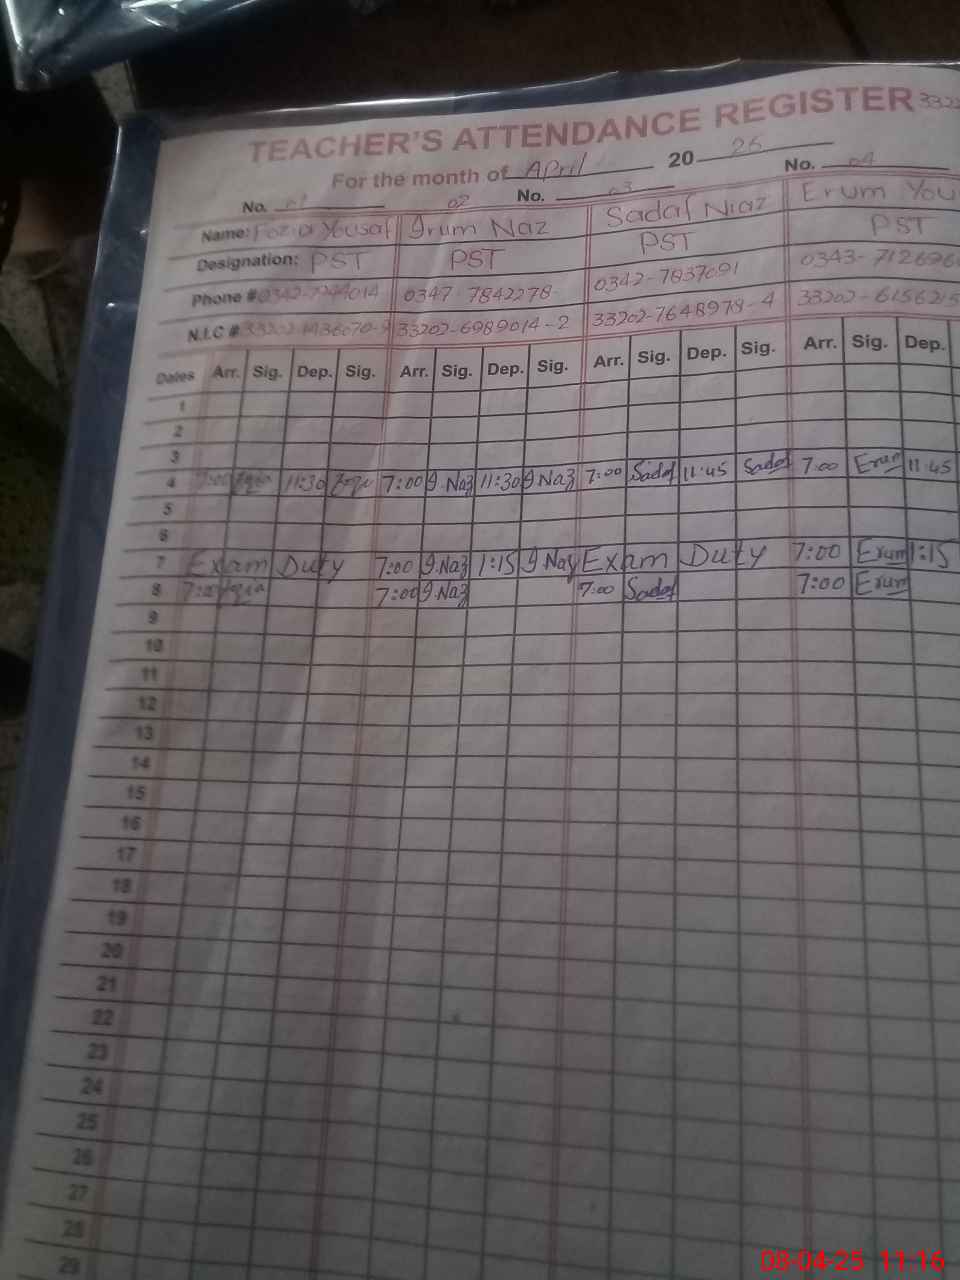 TEACHER'S ATTENDANCE REGISTER
For the month of April 20 25
No. 01 02 No. 03 No. 04
Name: Fozia Yousaf Irum Naz Sadaf Niaz Erum You
Designation: PST PST PST PST
Phone # 0347 7842278 0342-7837091 0343-712696
N.I.C # 33202-6989014-2 33202-7648978-4 33202-6156215
Dates Arr. Sig. Dep. Sig. Arr. Sig. Dep. Sig. Arr. Sig. Dep. Sig. Arr. Sig. Dep.
1
2
3
4 11:30 7:00 I.Naz 11:30 I.Naz 7:00 Sadaf 11:45 Sadaf 7:00 Erum 11:45
5
6
7 Exam Duty 7:00 I.Naz 1:15 I.Naz Exam Duty 7:00 Erum 1:15
8 7:00 7:00 I.Naz 7:00 Sadaf 7:00 Erum
9
10
11
12
13
14
15
16
17
18
19
20
21
22
23
24
25
26
27
28
29
08-04-25 11:16